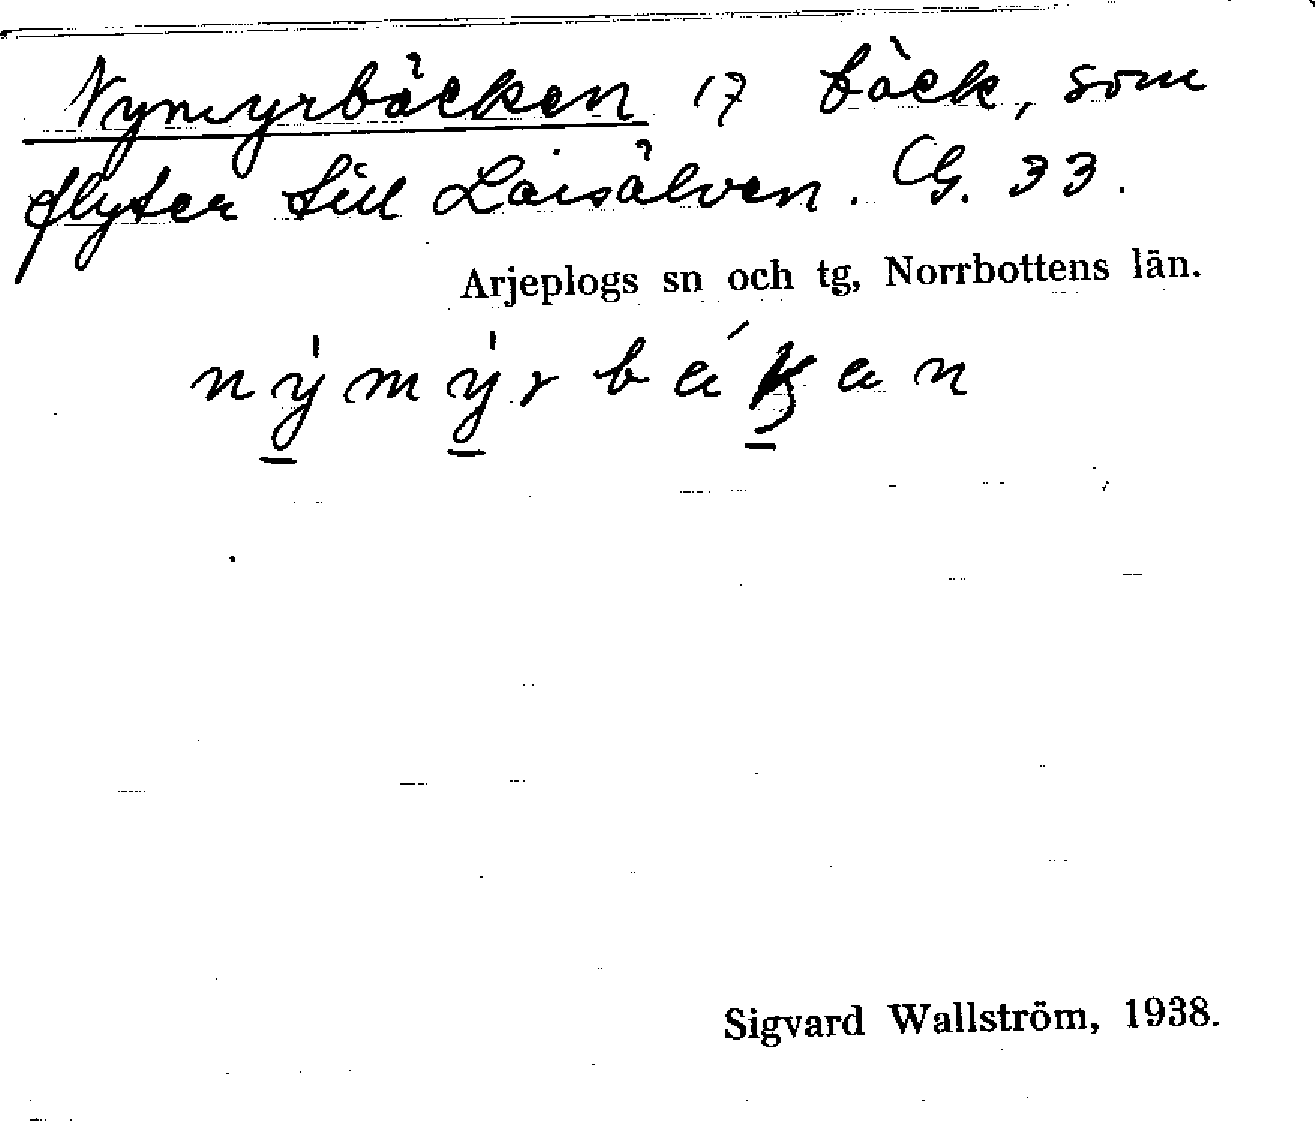 Nymyrbäcken 17 bäck, som
flyter till Laisälven. CG. 33.
Arjeplogs sn och tg, Norrbottens län.
Sigvard Wallström, 1938.